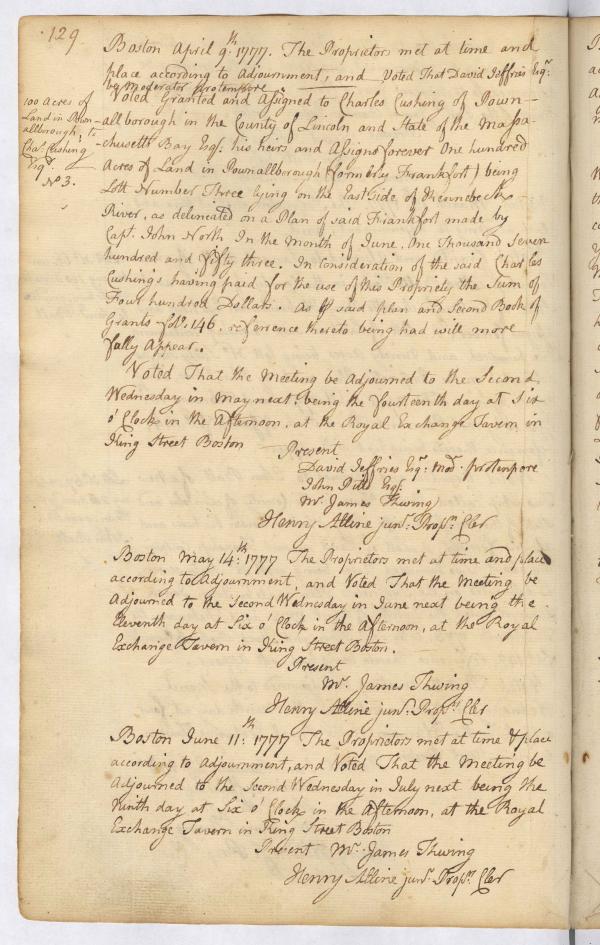 129
Boston April 9.th 1777. The Proprietors met at time and
place according to Adjournment, and Voted That David Jeffries Esqr.
be Moderator protempore
100 Acres of
Land in Pown-
allborough, to
Chas. Cushing
Esqr.
No. 3.
Voted Granted and Assigned to Charles Cushing of Pown-
allborough in the County of Lincoln and State of the Massa-
chusetts Bay Esq. his heirs and Assigns forever One hundred
Acres of Land in Pownallborough (formerly Frankfort) being
Lott Number Three lying on the East side of Kennebeck
River, as delineated on a Plan of said Frankfort made by
Capt. John North In the month of June, One Thousand Seven
hundred and fifty three. In Consideration of the said Charles
Cushing's having paid for the use of this Propriety the Sum of
Four hundred Dollars. As p said plan and Second Book of
Grants fol. 146, refference thereto being had will more
fully Appear.
Voted That the Meeting be Adjourned to the Second
Wednesday in May next, being the fourteenth day at Six
o'Clock in the Afternoon, at the Royal Exchange Tavern in
King Street Boston
Present
David Jeffries Esqr. Modr. protempore
John Pitts Esq.
Mr. James Thwing
Henry Alline junr. Proprs. Cler
Boston May 14.th 1777 The Proprietors met at time and place
according to Adjournment, and Voted That the Meeting be
Adjourned to the Second Wednesday in June next being the
Eleventh day at Six o'Clock in the Afternoon, at the Royal
Exchange Tavern in King Street Boston.
Present
Mr. James Thwing
Henry Alline junr. Proprs. Cler
Boston June 11.th 1777 The Proprietors met at time & place
according to Adjournment, and Voted That the Meeting be
Adjourned to the Second Wednesday in July next being the
Ninth day at Six o'Clock in the Afternoon, at the Royal
Exchange Tavern in King Street Boston
Present Mr. James Thwing
Henry Alline junr. Proprs. Cler